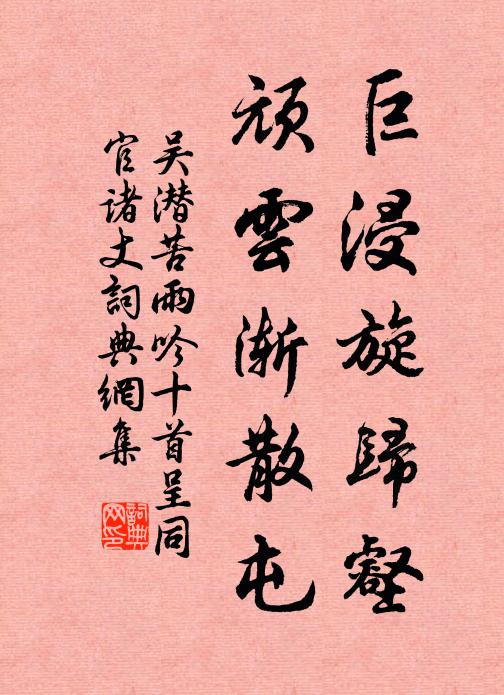 巨浸旋歸壑
頑雲漸散屯
吳潛苦雨吟十首呈同
官諸丈詞典網集
詞典
网印